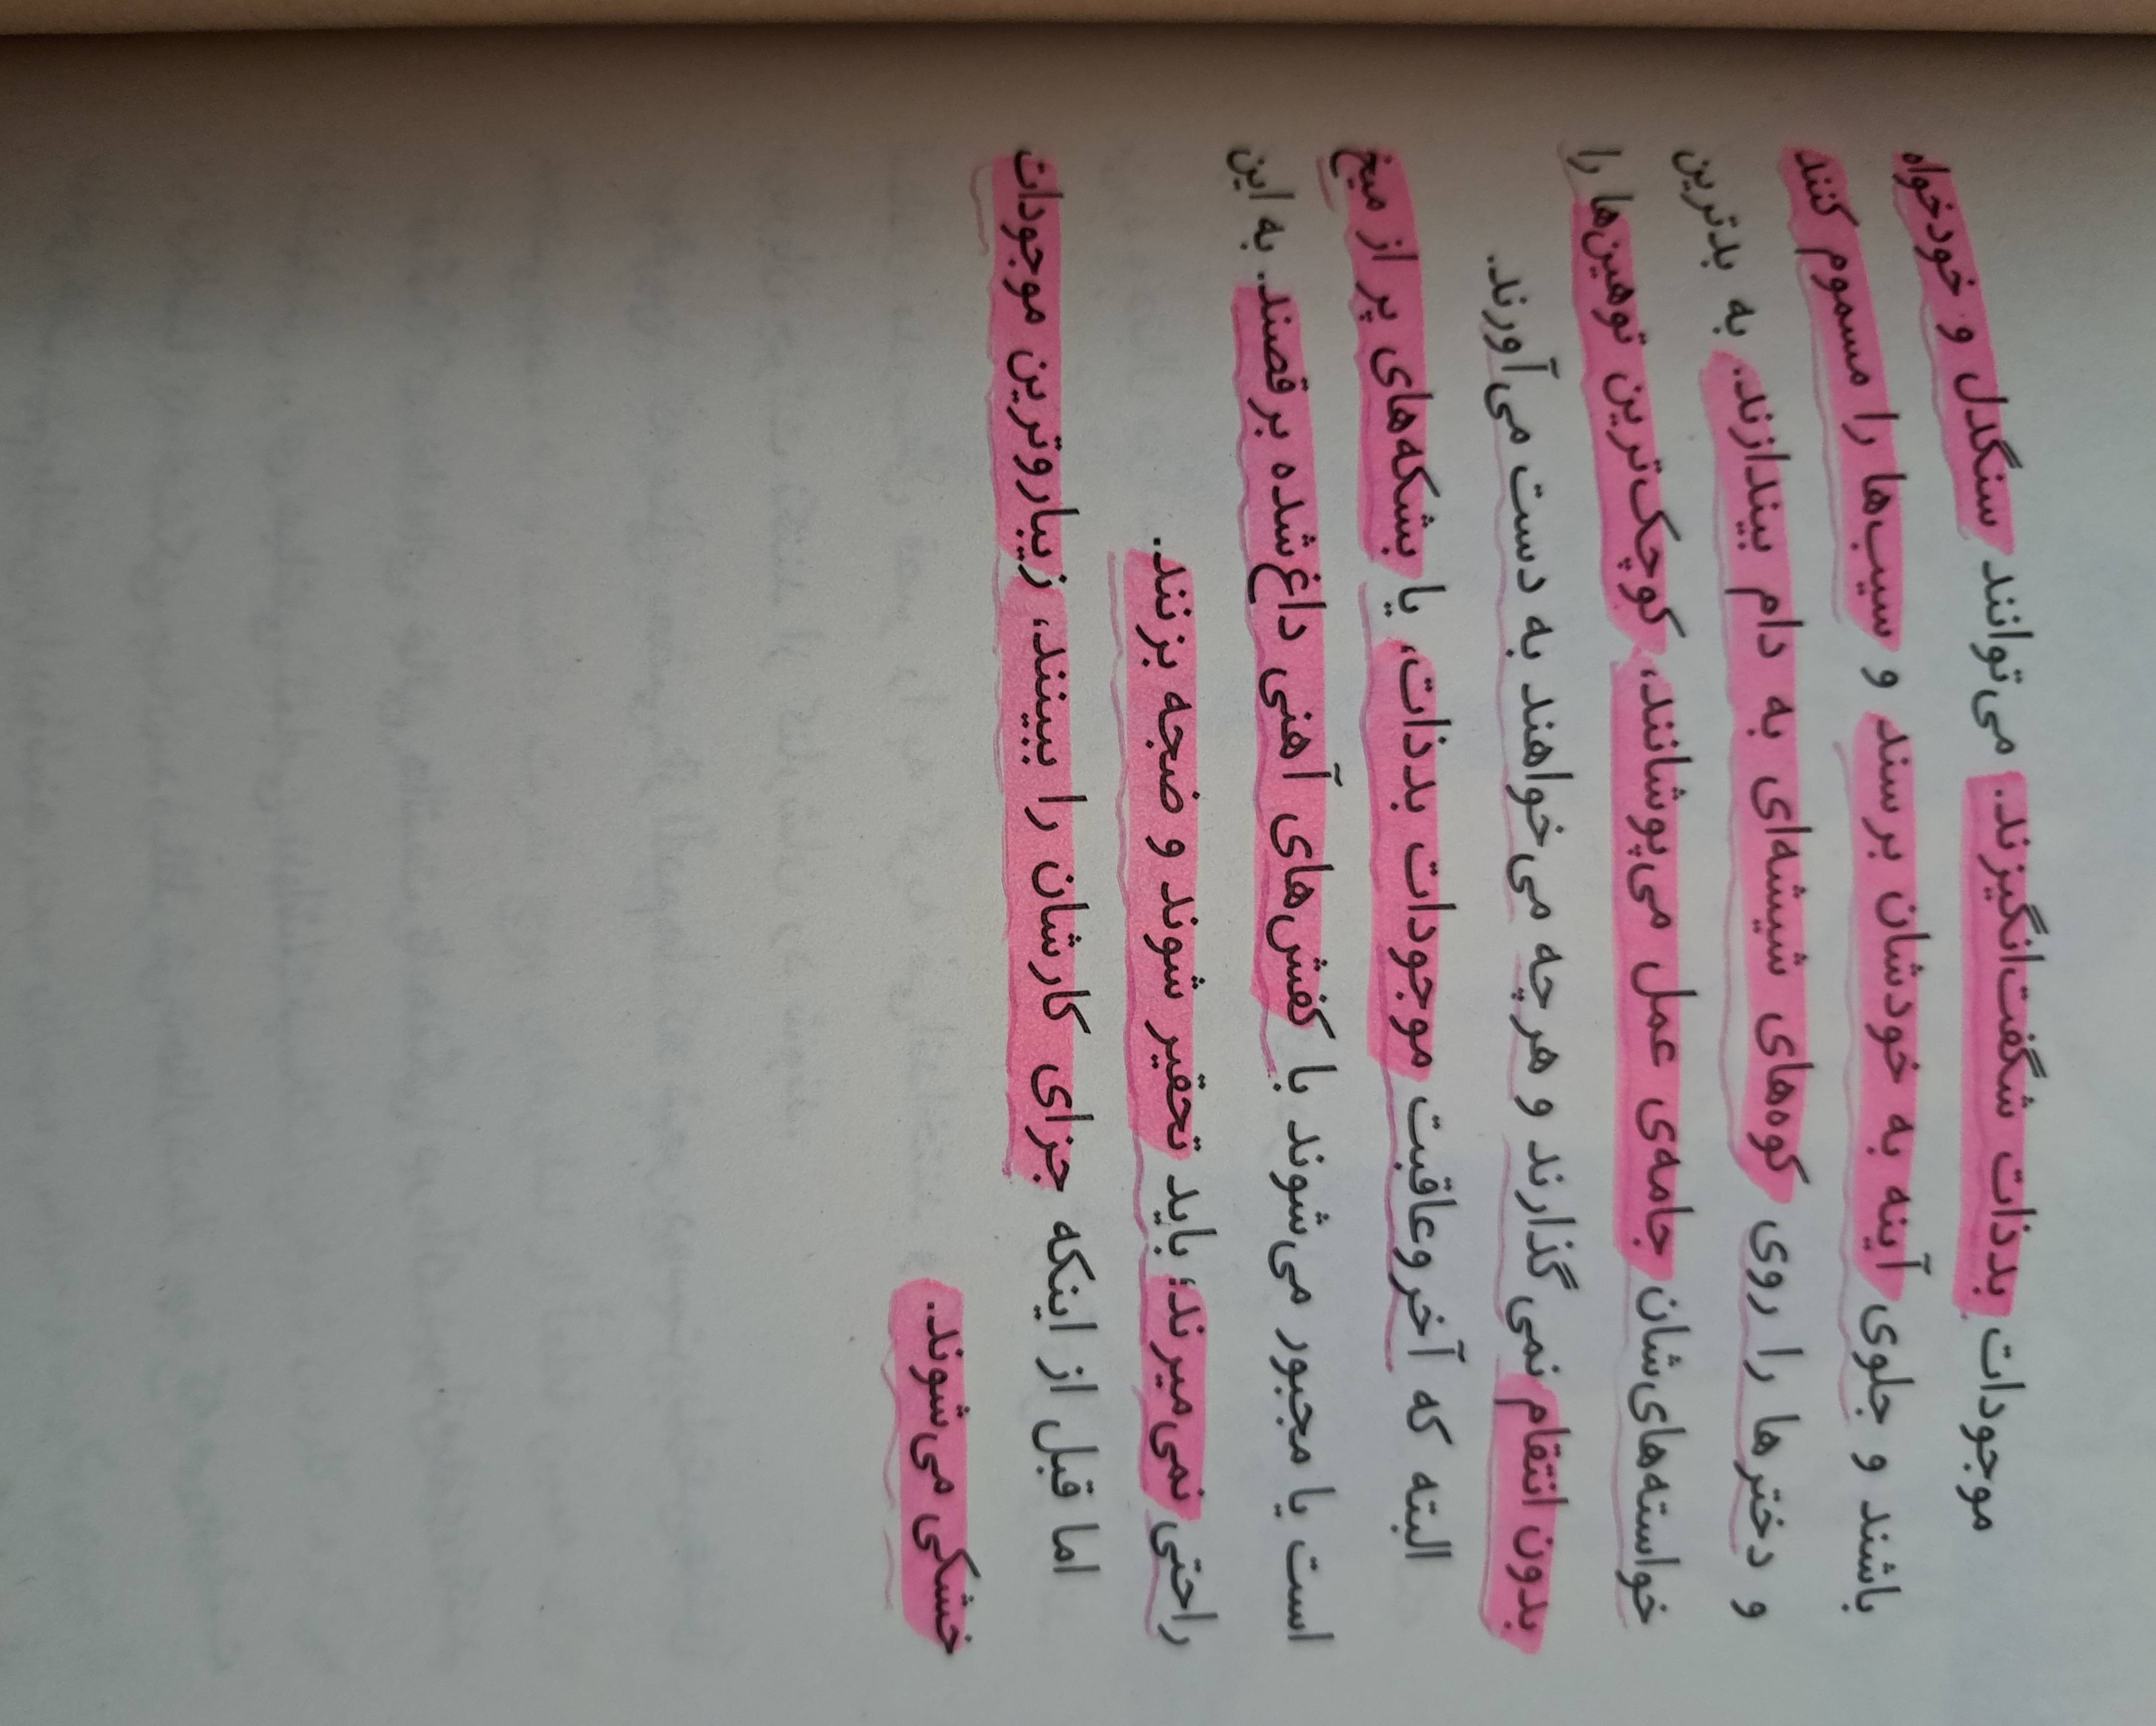 موجودات بدذات شگفت‌انگیزند. می‌توانند سنگدل و خودخواه
باشند و جلوی آینه به خودشان برسند و سیب‌ها را مسموم کنند
و دخترها را روی کوه‌های شیشه‌ای به دام بیندازند. به بدترین
خواسته‌های‌شان جامه‌ی عمل می‌پوشانند، کوچک‌ترین توهین‌ها را
بدون انتقام نمی‌گذارند و هرچه می‌خواهند به دست می‌آورند.
البته که آخروعاقبت موجودات بدذات، یا بشکه‌های پر از میخ
است یا مجبور می‌شوند با کفش‌های آهنی داغ‌شده برقصند. به این
راحتی نمی‌میرند؛ باید تحقیر شوند و ضجه بزنند.
اما قبل از اینکه جزای کارشان را ببینند، زیباروترین موجودات
خشکی می‌شوند.